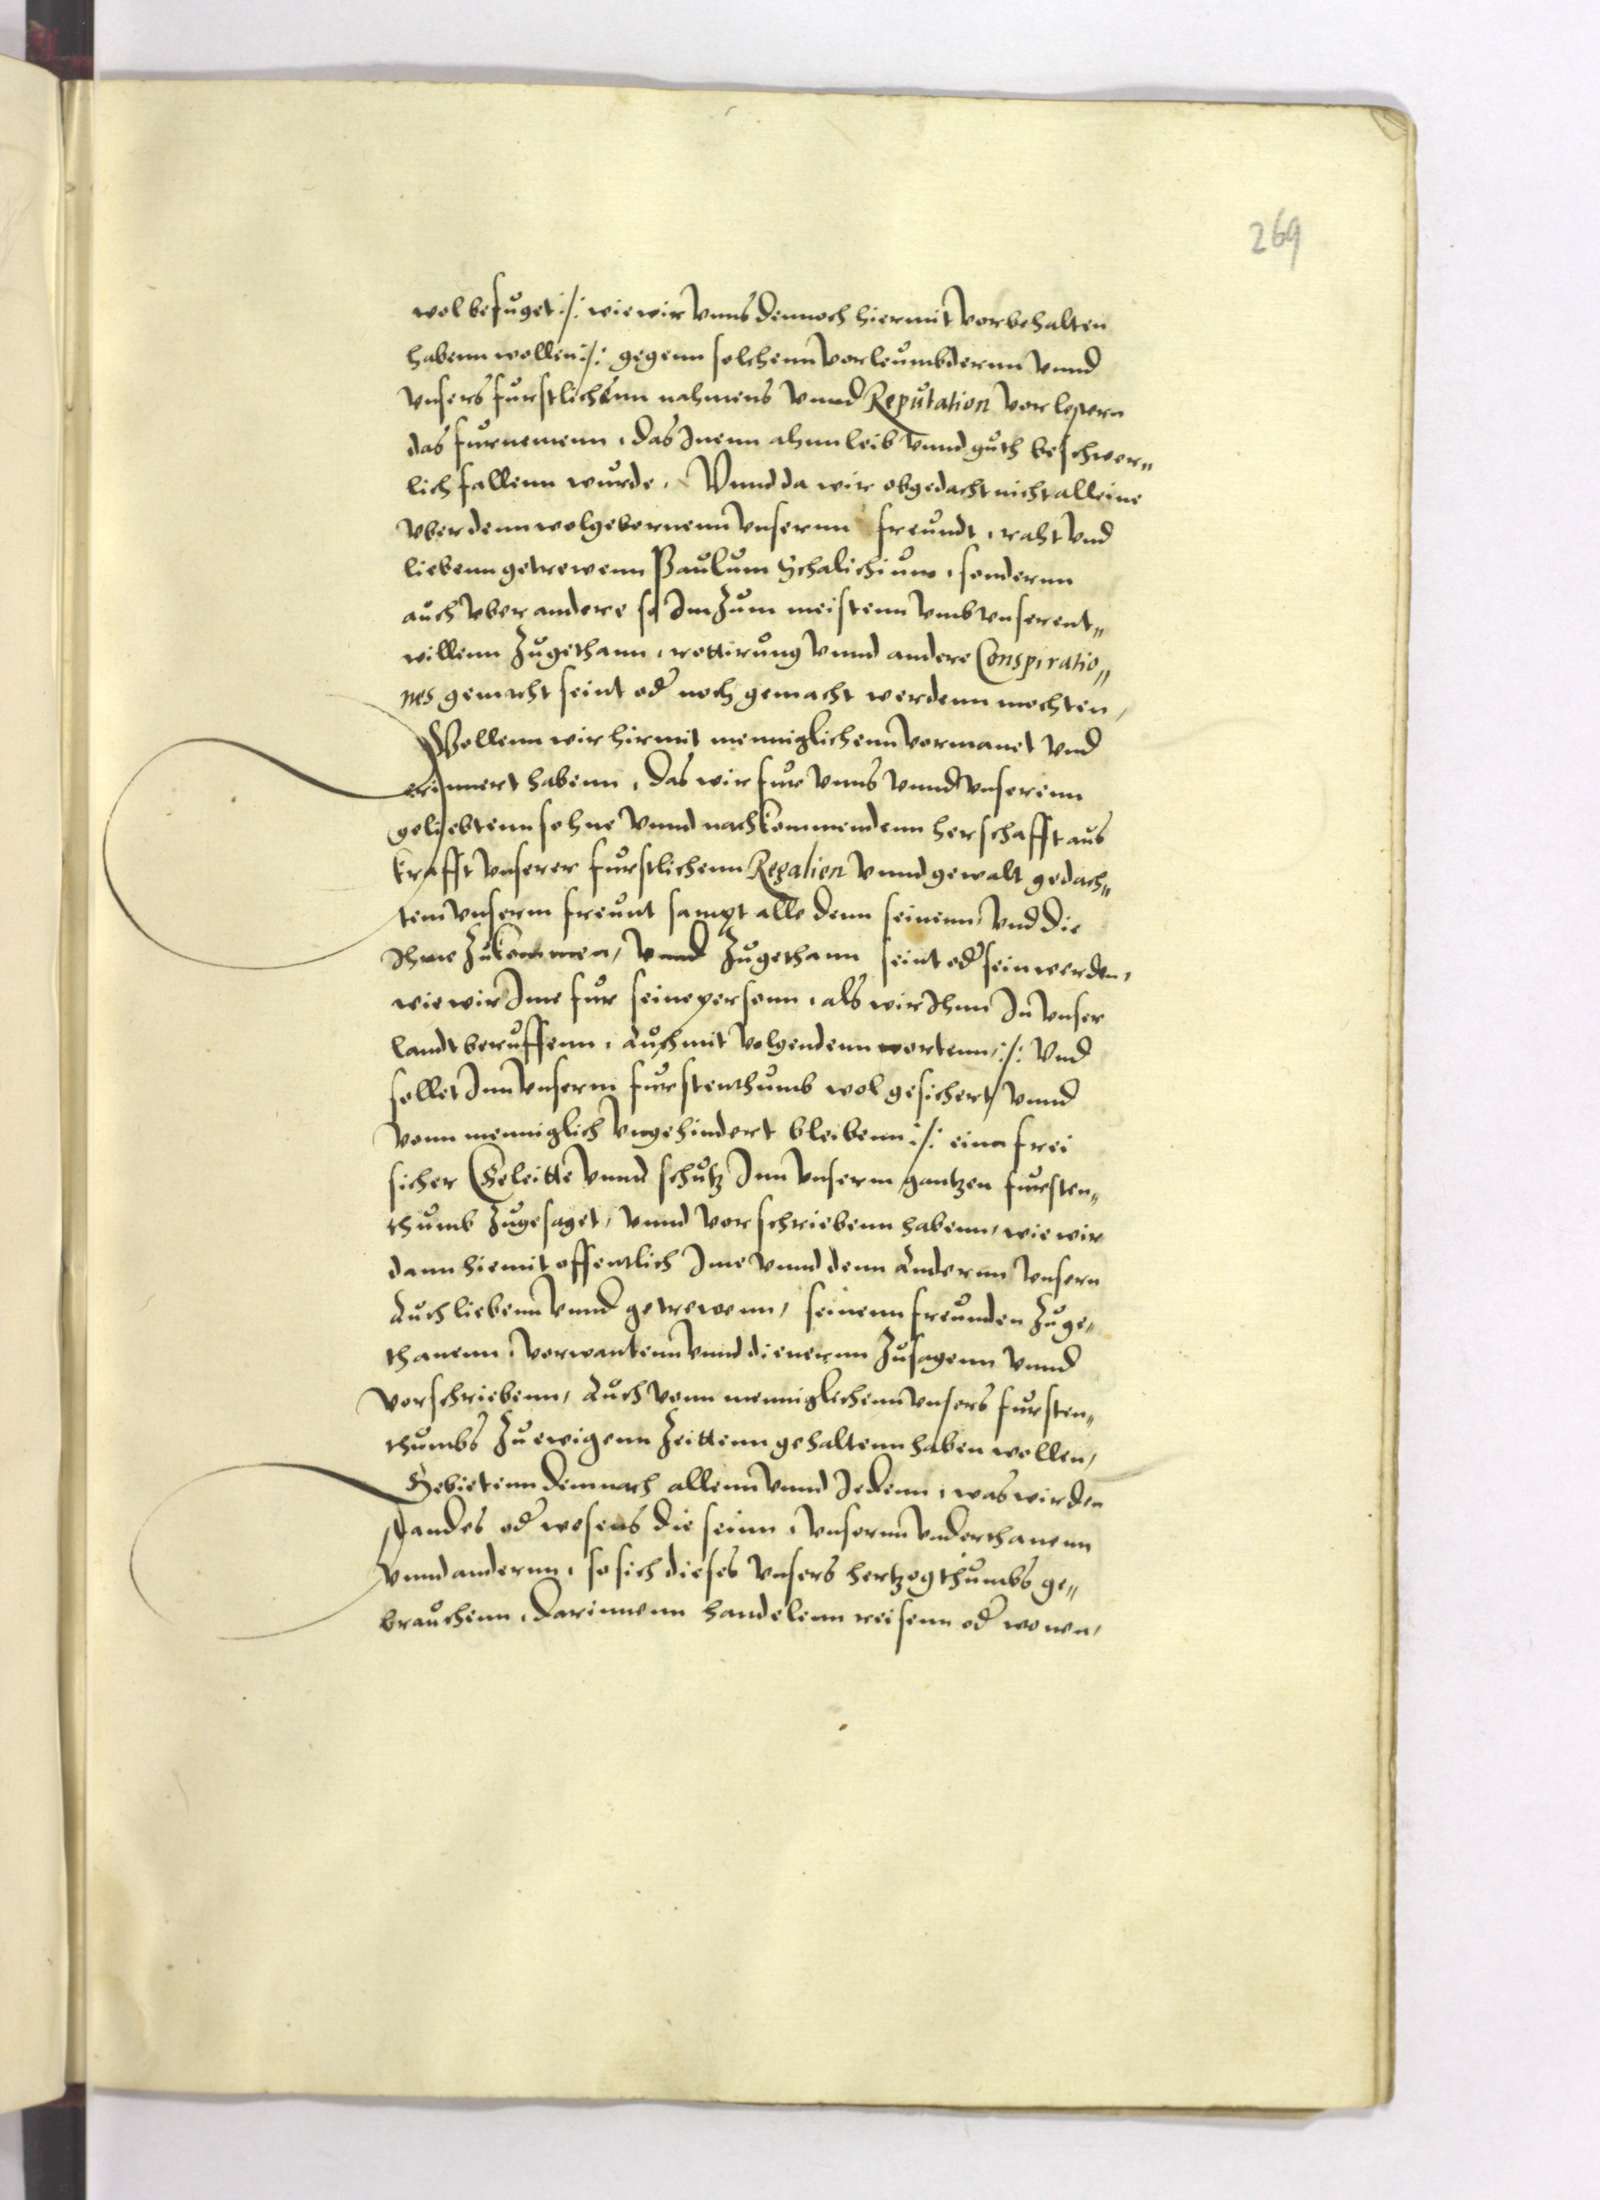 269
wol befuget :/: wie wir vnns dennoch hiermit vorbehalten
habenn wollen :/: gegenn solchenn vorleumbdernn vnnd
vnsers furstlichenn nahmens vnnd Reputation vorlesern
das furnemenn, das Inenn ahnn leib vnnd guth beschwer„
lich fallenn wurde. Vnnd da wir obgedacht nicht alleine
vber denn wolgebornenn vnsernn freundt, raht vnd
liebenn getrewenn Paulum Schalichium, sondernn
auch vber andere so Im Zum meistenn vmb vnserent„
willenn Zugethann, rottirung vnnd andere Conspiratio„
nes gemacht seint oder noch gemacht werdenn mochten,
Wollenn wir hirmit menniglichenn vormanet vnd
erinnert habenn, das wir fur vnns vnnd vnserenn
geliebtenn sohne vnnd nachkommendenn herschafft aus
krafft vnserer furstlichenn Regalien vnnd gewalt gedach„
tem vnserm freunt sampt alle denn seinenn, vnd die
Ihme Zukommen, vnnd Zugethann seint oder sein werden,
wie wir Ime fur seine personn, als wir Ihnn In vnser
landt beruffenn, Auch mit volgendenn wortenn, :/: Vnd
sollet Inn vnserm furstenthumb wol gesichert, vnnd
vonn menniglich vngehindert bleibenn :/: einn frei
sicher Geleitte vnnd schutz Inn vnserm gantzen fursten„
thumb Zugesaget, vnnd vorschriebenn habenn, wie wir
dann hiemit offentlich Ime vnnd denn Andernn vnsern
Auch liebenn vnnd getrewenn, seinenn freunden Zuge„
thanenn, vorwantenn vnnd dienernn Zusagenn vnnd
vorschriebenn, Auch vonn menniglichenn vnsers fursten„
thumbs Zu ewigenn Zeittenn gehaltenn haben wollen,
Gebietenn demnach allenn vnnd Jedenn, was wirden
standes oder wesens die seinn, vnsernn vnderthanenn
vnnd andernn, so sich dieses vnsers hertzogthumbs ge„
brauchenn, darinnenn handelenn reisenn oder wonen,